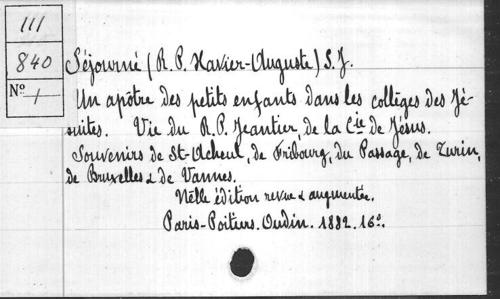 111
840
No 1
Séjourné (R. P. Xavier-Auguste) S. J.
Un apôtre des petits enfants dans les collèges des Jé-
suites. Vie du R. P. Jeantier, de la Cie de Jésus.
Souvenirs de St-Acheul, de Fribourg, du Passage, de Turin,
de Bruxelles & de Vannes.
Nelle édition revue & augmentée.
Paris-Poitiers. Oudin. 1882. 16o.